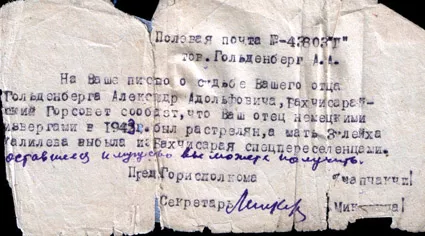 Полевая почта №-43803"Г"
тов. Гольденберг А.А.
На Ваше письмо о судьбе Вашего отца
Гольденберга Александр Адольфович, Бахчисарай-
ский Горсовет сообщает, что Ваш отец немецкими
извергами в 194 г. был растрелян, а мать Зулейха
Халилева выбыла из Бахчисарая спецпереселенцами.
оставшееся имущество вы можете получить.
Пред.Горисполкома
Секретарь